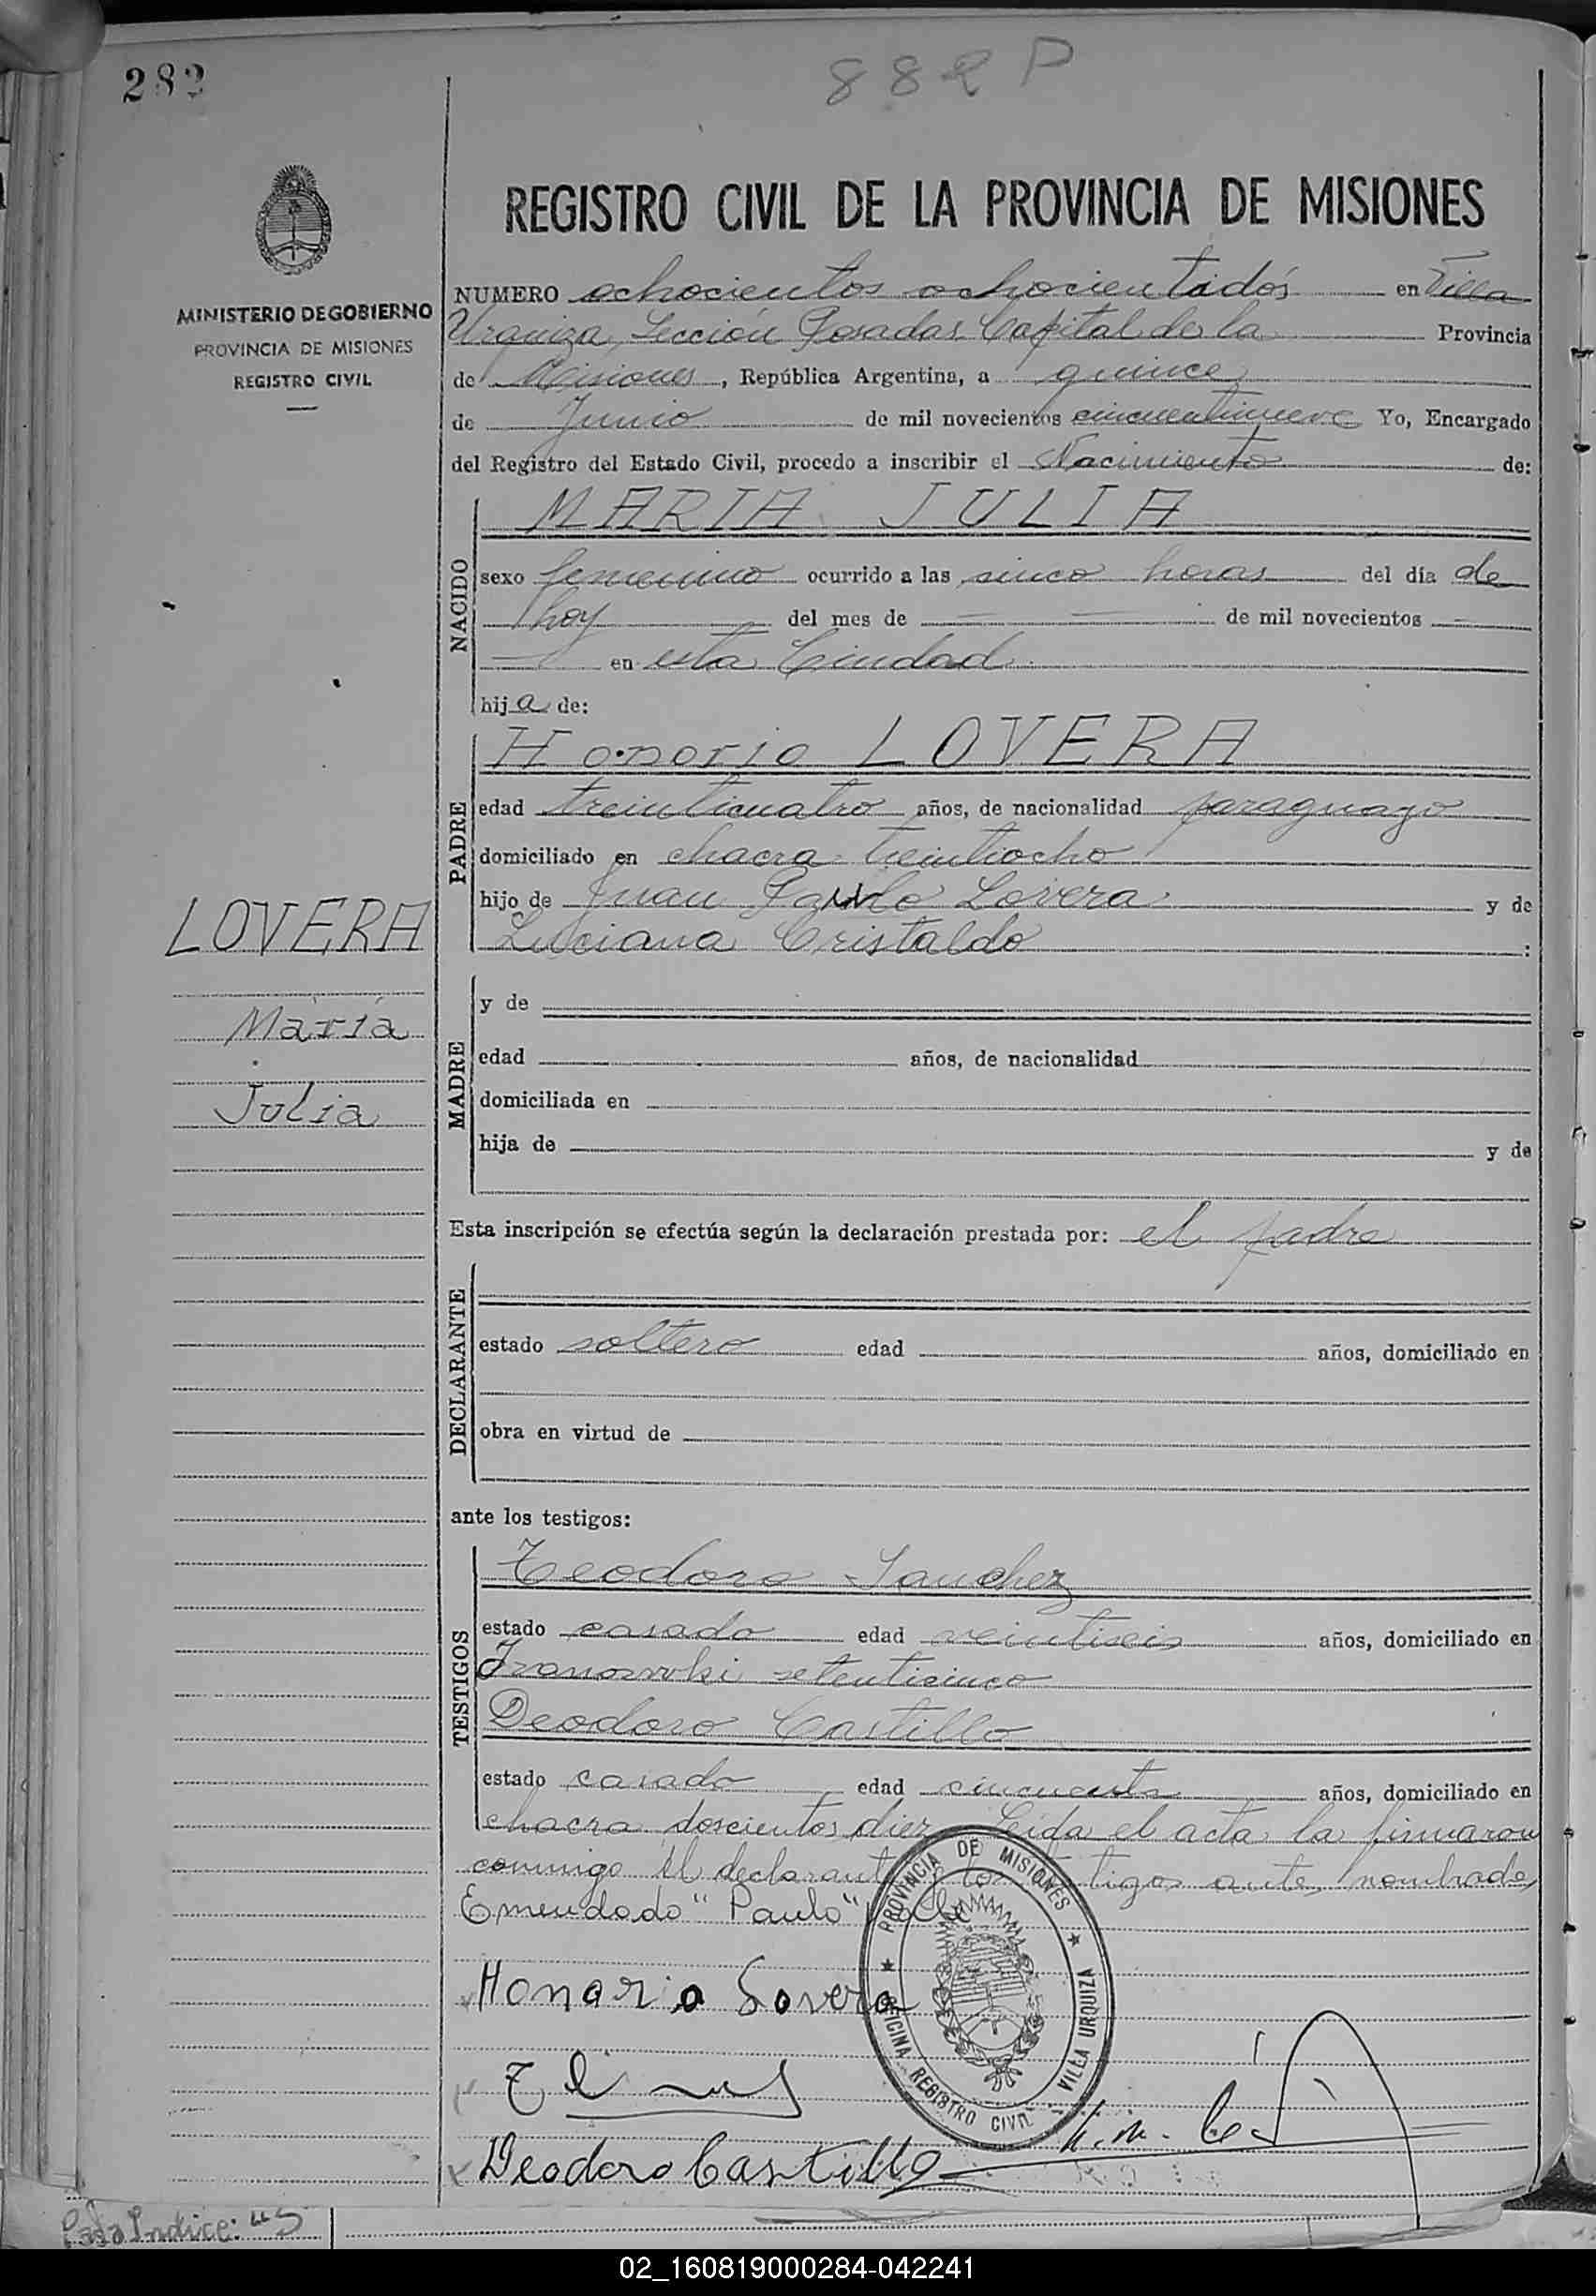 282
882 P
REGISTRO CIVIL DE LA PROVINCIA DE MISIONES
MINISTERIO DE GOBIERNO
PROVINCIA DE MISIONES
REGISTRO CIVIL
NUMERO ochocientos ochocientados en Villa
Urquiza, Sección Posadas Capital de la Provincia
de Misiones, República Argentina, a quince
de Junio de mil novecientos cincuentinueve Yo, Encargado
del Registro del Estado Civil, procedo a inscribir el Nacimiento de:
NACIDO
MARIA JULIA
sexo femenino ocurrido a las cinco horas del día de
hoy del mes de de mil novecientos
en esta Ciudad
hija de:
PADRE
Honorio LOVERA
edad treinticuatro años, de nacionalidad paraguayo
domiciliado en chacra treintiocho
hijo de Juan Paulo Lovera y de
Luciana Cristaldo :
LOVERA
María
Julia
MADRE
y de
edad años, de nacionalidad
domiciliada en
hija de y de
Esta inscripción se efectúa según la declaración prestada por: el padre
DECLARANTE
estado soltero edad años, domiciliado en
obra en virtud de
ante los testigos:
TESTIGOS
Teodoro Sanchez
estado casado edad veintiseis años, domiciliado en
setenticinco
Deodoro Castillo
estado casado edad cincuenta años, domiciliado en
chacra doscientos diez Leida el acta la firmaron
conmigo el declarante los testigos ante nombrados
Emendado "Paulo" Vale
PROVINCIA DE MISIONES
OFICINA REGISTRO CIVIL VILLA URQUIZA
Honario Lovera
Deodoro Castillo
Indice:
02_160819000284-042241